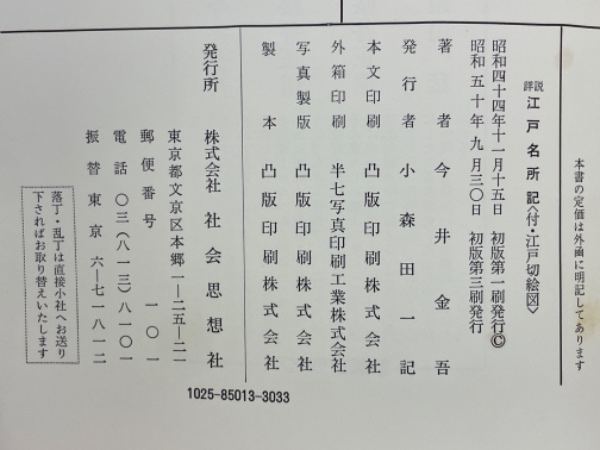 本書の定価は外函に明記してあります
詳説 江戸名所記〈付・江戸切絵図〉
昭和四十四年十一月十五日 初版第一刷発行©
昭和五十年九月三〇日 初版第三刷発行
著者 今井金吾
発行者 小森田一記
本文印刷 凸版印刷株式会社
外箱印刷 半七写真印刷工業株式会社
写真製版 凸版印刷株式会社
製本 凸版印刷株式会社
発行所 株式会社 社会思想社
東京都文京区本郷一―二五―二一
郵便番号 一〇一
電話 〇三(八一三)八一〇一
振替 東京 六―七一八一二
落丁・乱丁は直接小社へお送り
下さればお取り替えいたします
1025-85013-3033